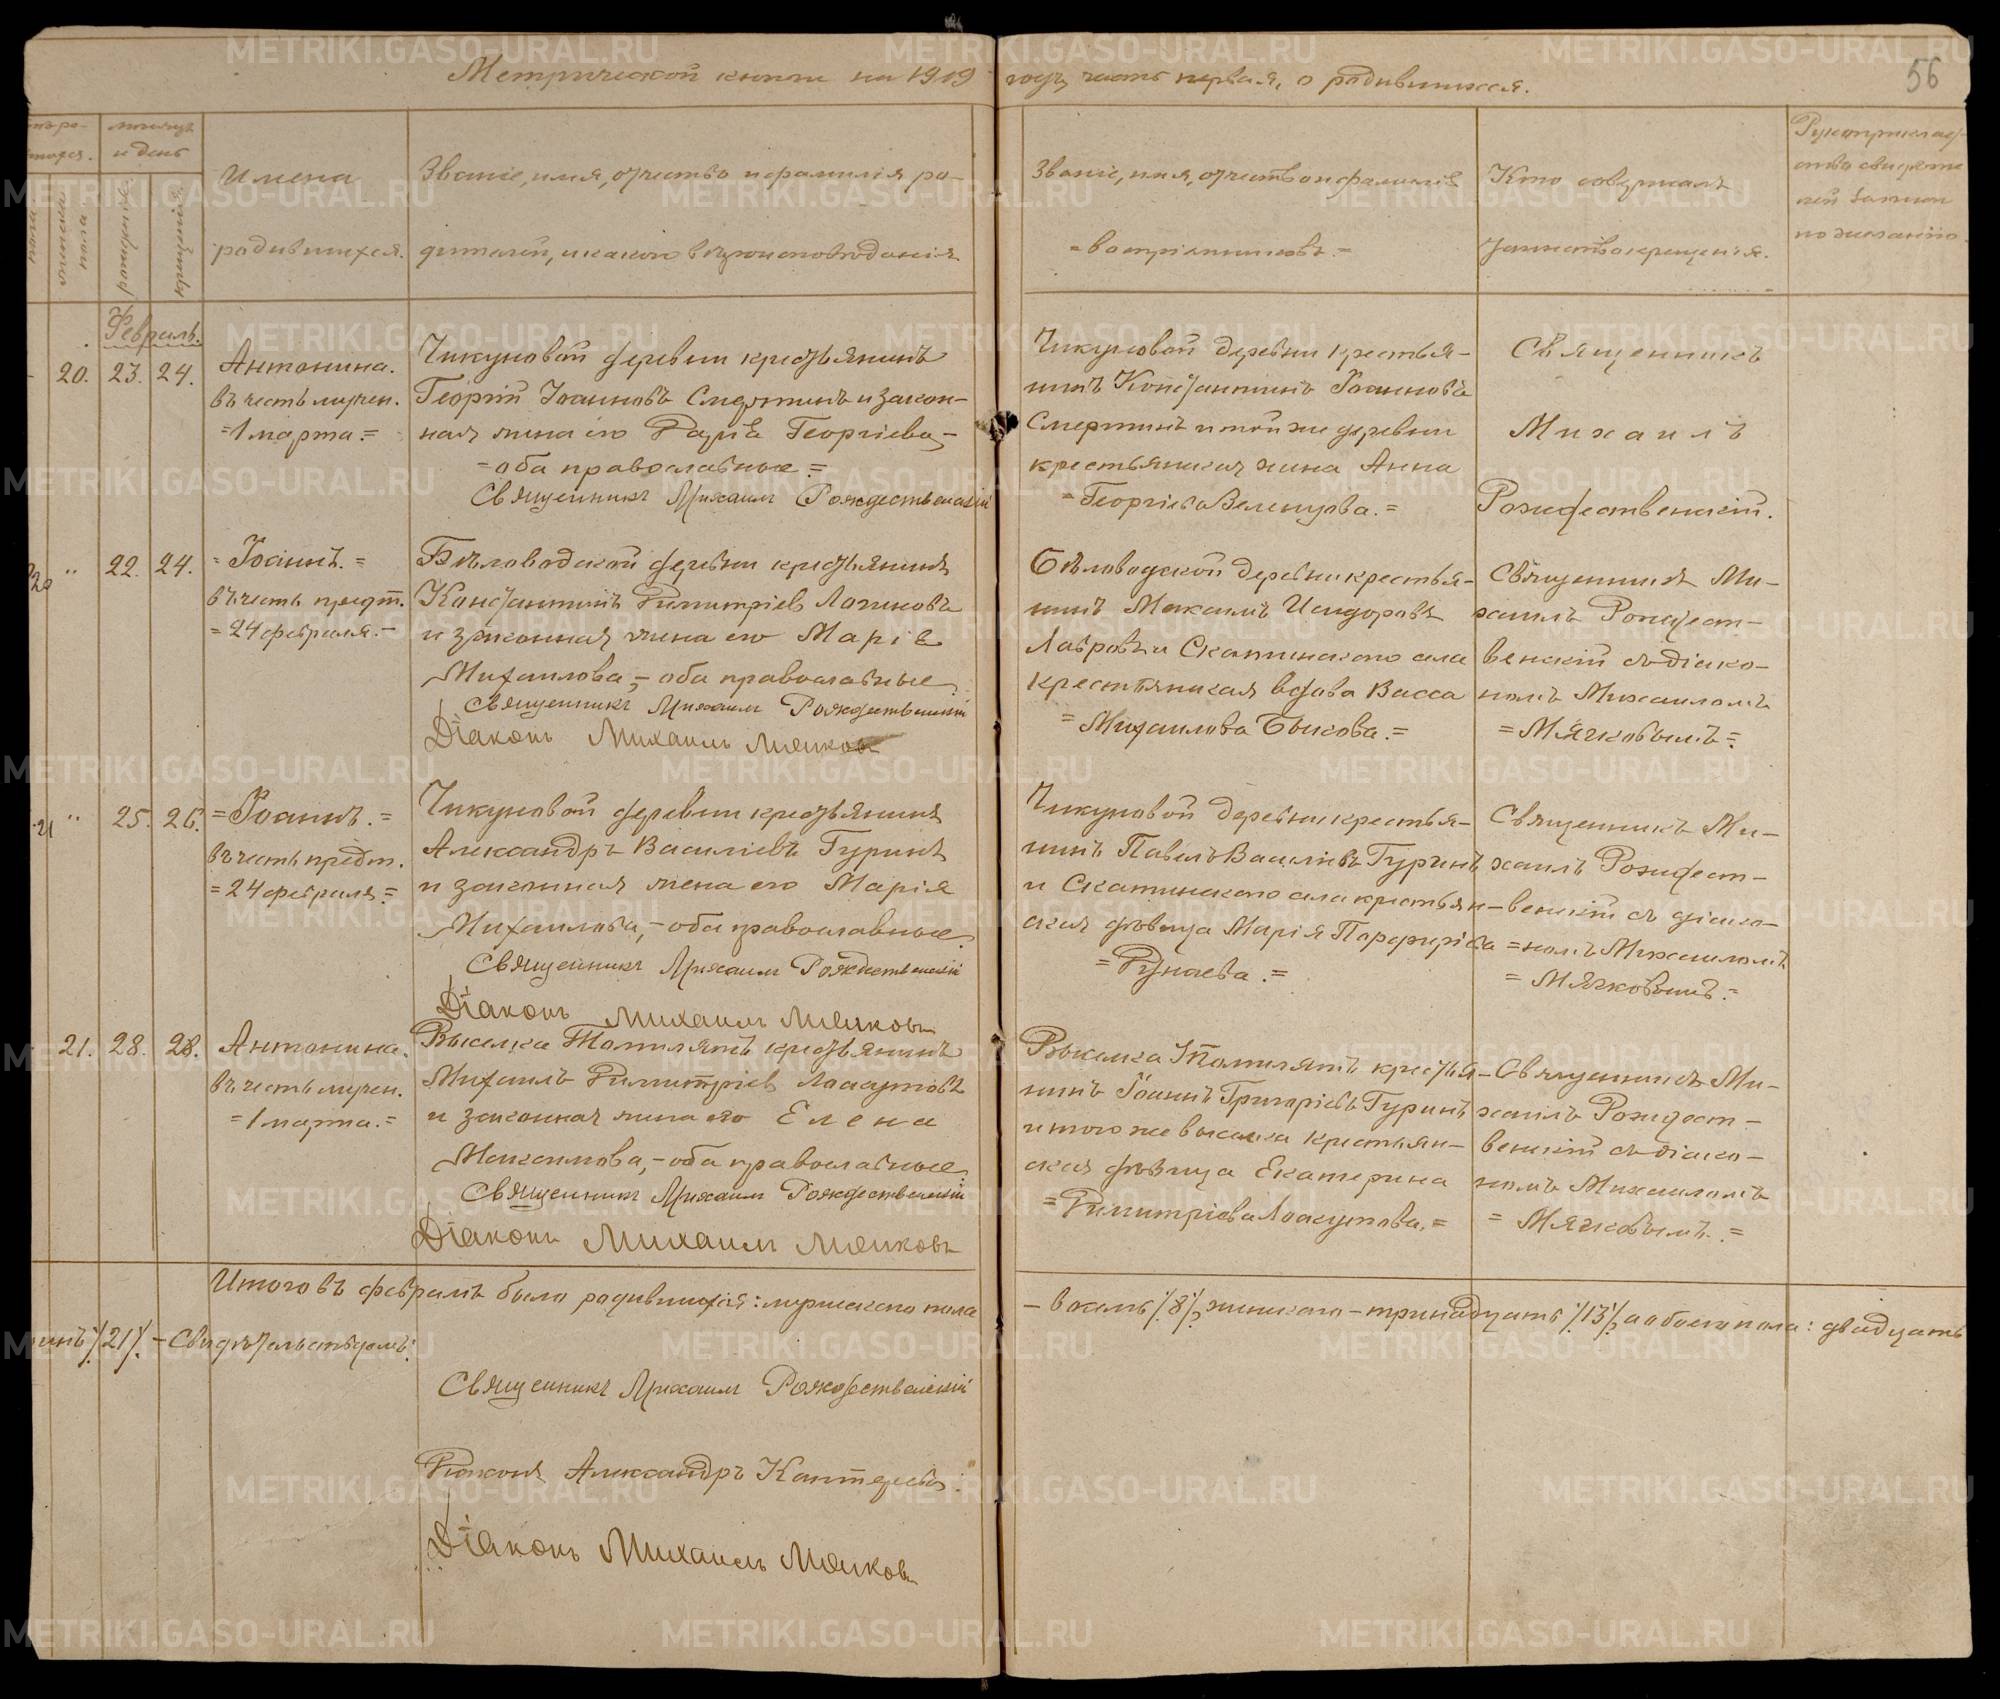 Метрической книги на 1919 годъ, часть первая, о родившихся.
56
мѣсяцъ
и день
Имена
родившихся.
Званіе, имя, отчество и фамилія ро-
дителей, и какого вѣроисповѣданія.
Званіе, имя, отчество и фамилія
=воспріемниковъ.=
Кто совершалъ
таинство крещенія.
Рукоприклад-
ство свидѣте
лей записи
по желанію.
женска
пола
рожденія
крещенія
Февраль.
20. 23. 24.
Антонина.
въ честь мучен.
=1 марта.=
Чикуновой деревни крестьянинъ
Георгій Іоанновъ Смертинъ и закон-
ная жена его Георгіева,-
=оба православные.=
Священникъ Михаилъ Рождественскій
Чикуновой деревни крестья-
нинъ Константинъ Іоанновъ
Смертинъ и той же деревни
крестьянская жена Анна
=Георгіева =
Священникъ
Михаилъ
Рождественскій.
20 " 22. 24.
=Іоаннъ.=
въ честь предт.
=24 февраля.-
Бѣловодской деревни крестьянинъ
Константинъ Димитріевъ Логиновъ
и законная жена его Марія
Михаилова,- оба православные.
Священникъ Михаилъ Рождественскій
Діаконъ Михаилъ Мягковъ
Бѣловодской деревни крестья-
нинъ Максимъ Исидоровъ
Лавровъ и Скатинскаго села
крестьянская вдова Васса
=Михаилова Быкова.=
Священникъ Ми-
хаилъ Рождест-
венскій съ діако-
номъ Михаиломъ
=Мягковымъ=
21 " 25. 26.
=Іоаннъ.=
въ честь предт.
=24 февраля=
Чикуновой деревни крестьянинъ
Александръ Василіевъ Гуринъ
и законная жена его Марія
Михаилова,- оба православные.
Священникъ Михаилъ Рождественскій
Діаконъ Михаилъ Мягковъ
Чикуновой деревни крестья-
нинъ Павелъ Василіевъ Гуринъ
и Скатинскаго села крестьян-
ская дѣвица Марія Порфиріева
=Рунаева.=
Священникъ Ми-
хаилъ Рождест-
венскій съ діако-
=номъ Михаиломъ
=Мягковымъ.=
21. 28. 28.
Антонина.
въ честь мучен.
=1 марта.=
Выселка Томилятъ крестьянинъ
Михаилъ Димитріевъ Лоскутовъ
и законная жена его Елена
Максимова,- оба православные
Священникъ Михаилъ Рождественскій
Діаконъ Михаилъ Мягковъ
Выселка Томилятъ крестья-
нинъ Іоаннъ Григоріевъ Гуринъ
и того же выселка крестьян-
ская дѣвица Екатерина
=Димитріева Лоскутова.=
Священникъ Ми-
хаилъ Рождест-
венскій съ діако-
номъ Михаиломъ
=Мягковымъ.=
Итого въ февралѣ было родившихся: мужескаго пола - восемь /8/, женскаго - тринадцать /13/, а обоего пола: двадцать
/21/. - Свидѣтельствуемъ:
Священникъ Михаилъ Рождественскій
Діаконъ Александръ
Діаконъ Михаилъ Мягковъ
METRIKI.GASO-URAL.RU